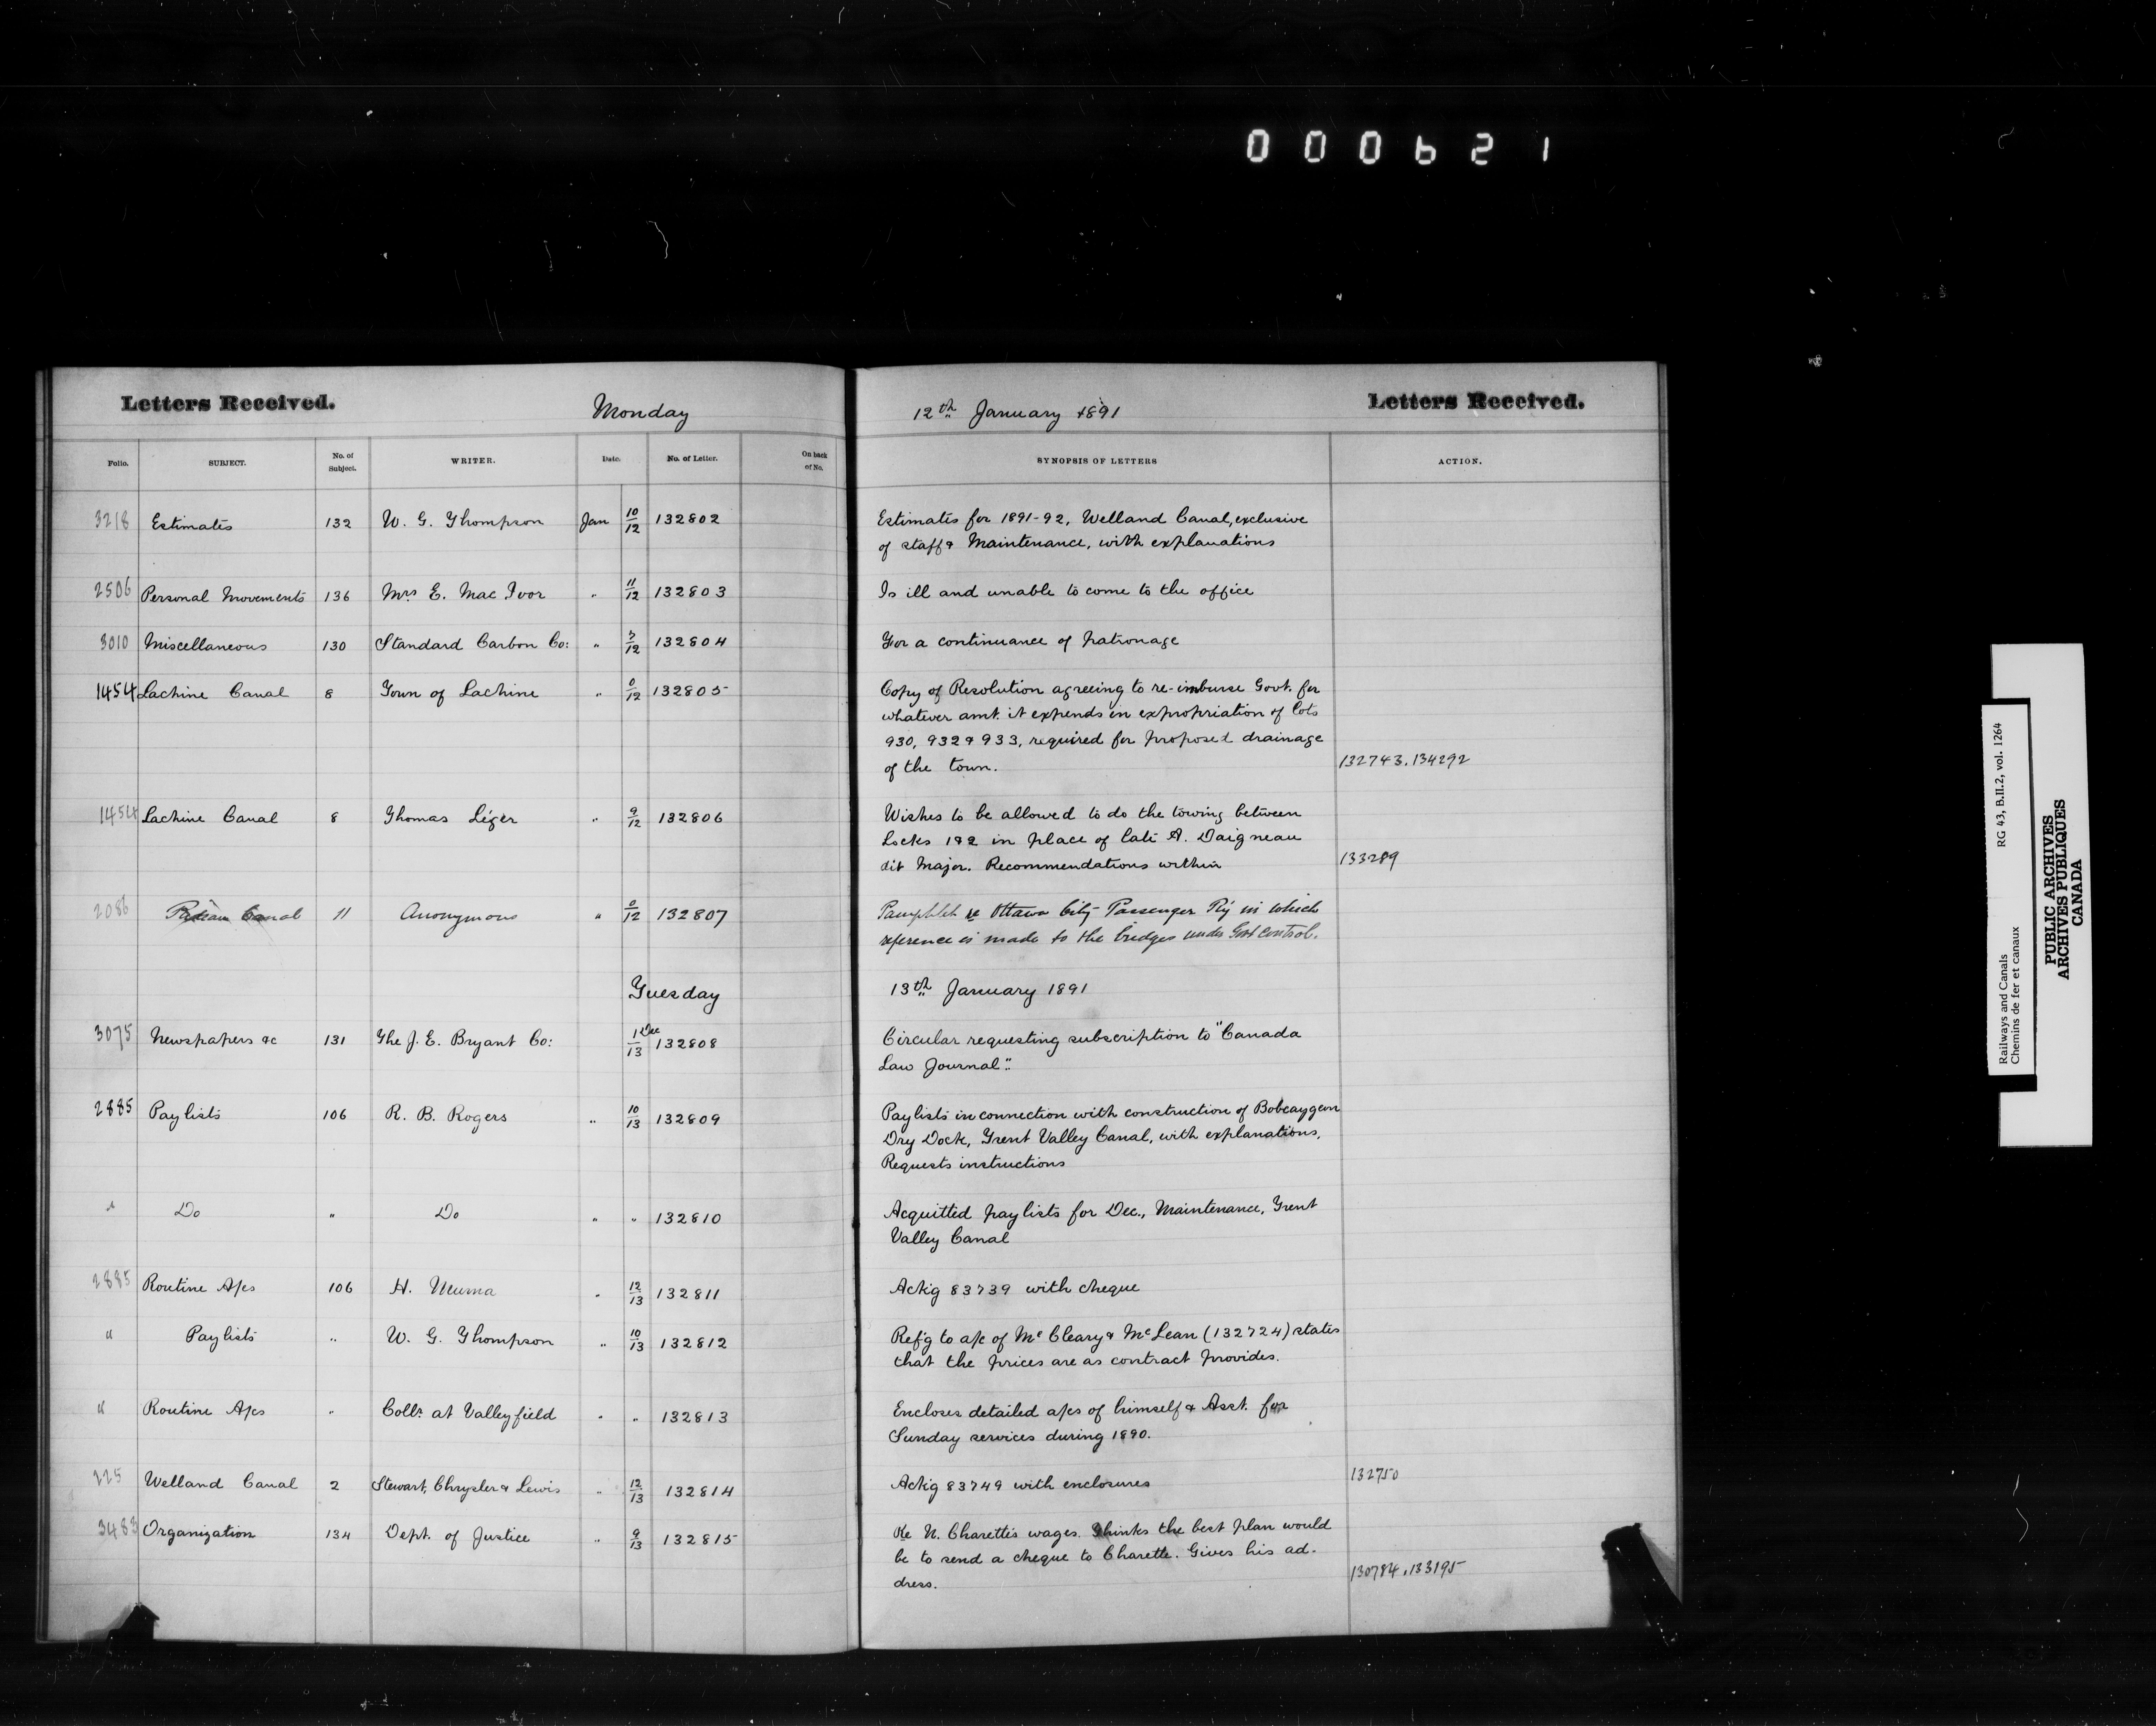 000621
Letters Received.
Monday
12th January 1891
Letters Received.
Folio. SUBJECT. No. of Subject. WRITER. Date. No. of Letter. On back of No. SYNOPSIS OF LETTERS ACTION.
3218 Estimates 132 W. G. Thompson Jan 10/12 132802 Estimates for 1891-92, Welland Canal, exclusive
of staff & Maintenance, with explanations
2506 Personal Movements 136 Mrs E. Mac Ivor " 11/12 132803 Is ill and unable to come to the office
3010 Miscellaneous 130 Standard Carbon Co: " 7/12 132804 For a continuance of patronage
1454 Lachine Canal 8 Town of Lachine " 0/12 132805 Copy of Resolution agreeing to re-imburse Govt. for
whatever amt. it expends in expropriation of lots
930, 932 & 933, required for proposed drainage
of the town. 132743.134292
1454 Lachine Canal 8 Thomas Léger " 9/12 132806 Wishes to be allowed to do the towing between
Locks 1 & 2 in place of late A. Daigneau
dit Major. Recommendations within 133289
2086 Rideau Canal 11 Anonymous " 0/12 132807 Pamphlet re Ottawa City Passenger Ry in which
reference is made to the bridges under Govt control.
Tuesday 13th January 1891
3075 Newspapers &c 131 The J. E. Bryant Co: Dec 1/13 132808 Circular requesting subscription to "Canada
Law Journal".
2885 Paylists 106 R. B. Rogers " 10/13 132809 Paylists in connection with construction of Bobcaygeon
Dry Dock, Trent Valley Canal, with explanations.
Requests instructions
" Do " Do " " 132810 Acquitted paylists for Dec., Maintenance, Trent
Valley Canal
2885 Routine A/cs 106 H. Neuma " 12/13 132811 Ackg 83739 with cheque
" Paylists " W. G. Thompson " 10/13 132812 Ref'g to a/c of McCleary & McLean (132724) states
that the prices are as contract provides.
" Routine A/cs " Collr. at Valleyfield " " 132813 Encloses detailed a/cs of himself & Asst. for
Sunday services during 1890.
225 Welland Canal 2 Stewart, Chrysler & Lewis " 12/13 132814 Ackg 83749 with enclosures 132750
3483 Organization 134 Dept. of Justice " 9/13 132815 Re N. Charette's wages. Thinks the best plan would
be to send a cheque to Charette. Gives his ad-
dress. 130784.133195
Railways and Canals
Chemins de fer et canaux
RG 43, B.II.2, vol. 1264
PUBLIC ARCHIVES
ARCHIVES PUBLIQUES
CANADA